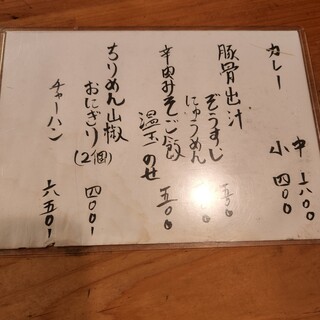 カレー
中 六〇〇
小 四〇〇
豚骨出汁
ぞうすい
にゅうめん
辛田みそご飯
温玉のせ 五〇〇
ちりめん山椒
おにぎり(2個) 四〇〇
チャーハン 六五〇